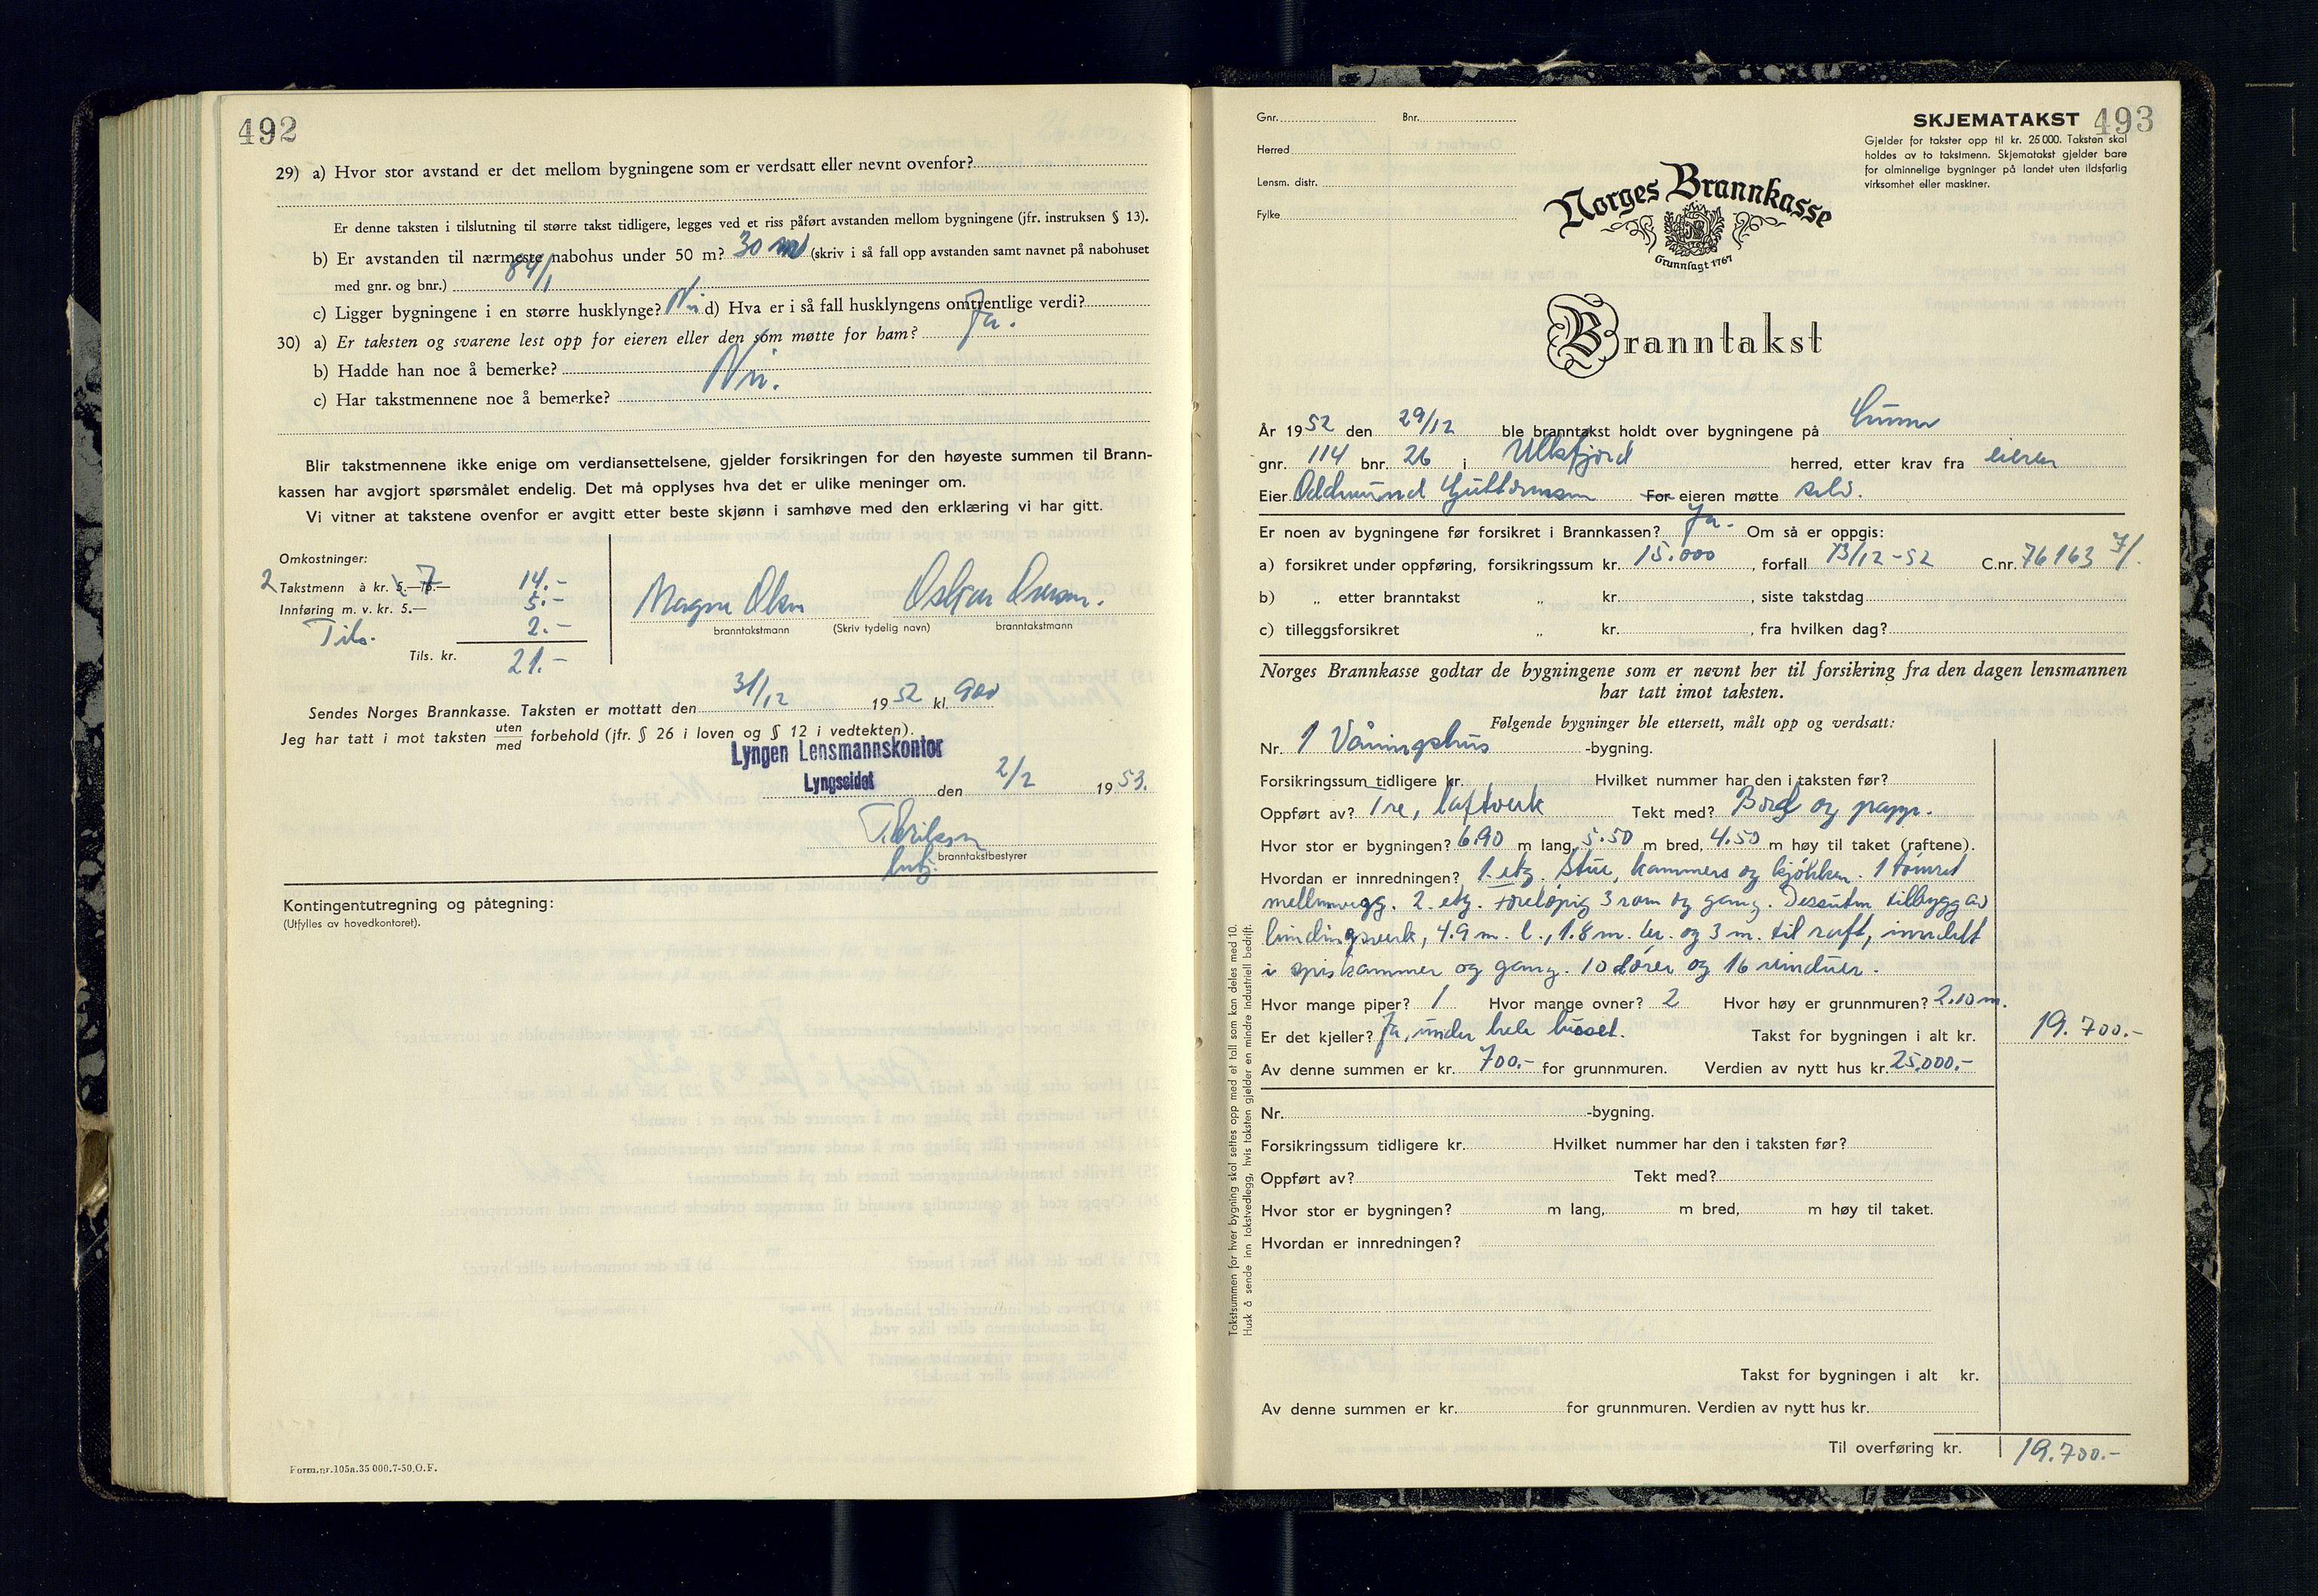 492
29) a) Hvor stor avstand er det mellom bygningene som er verdsatt eller nevnt ovenfor?
Er denne taksten i tilslutning til større takst tidligere, legges ved et riss påført avstanden mellom bygningene (jfr. instruksen § 13).
b) Er avstanden til nærmeste nabohus under 50 m? 30 m (skriv i så fall opp avstanden samt navnet på nabohuset
med gnr. og bnr.) 84/1
c) Ligger bygningene i en større husklynge? Nei d) Hva er i så fall husklyngens omtrentlige verdi?
30) a) Er taksten og svarene lest opp for eieren eller den som møtte for ham? Ja.
b) Hadde han noe å bemerke?
c) Har takstmennene noe å bemerke? Nei.
Blir takstmennene ikke enige om verdiansettelsene, gjelder forsikringen for den høyeste summen til Brann-
kassen har avgjort spørsmålet endelig. Det må opplyses hva det er ulike meninger om.
Vi vitner at takstene ovenfor er avgitt etter beste skjønn i samhøve med den erklæring vi har gitt.
Omkostninger:
2 Takstmenn à kr. 5.— 7 14.-
Innføring m. v. kr. 5.— 5.-
2.-
Tils. kr. 21.-
branntakstmann (Skriv tydelig navn) branntakstmann
Sendes Norges Brannkasse. Taksten er mottatt den 31/12 1952 kl. 900
Jeg har tatt i mot taksten uten/med forbehold (jfr. § 26 i loven og § 12 i vedtekten).
Lyngen Lensmannskontor
Lyngseidet den 2/2 1953.
branntakstbestyrer
Kontingentutregning og påtegning:
(Utfylles av hovedkontoret).
Form.nr.105a.35 000.7-50.O.F.
Gnr. Bnr.
Herred
Lensm. distr.
Fylke
SKJEMATAKST 493
Gjelder for takster opp til kr. 25 000. Taksten skal
holdes av to takstmenn. Skjematakst gjelder bare
for alminnelige bygninger på landet uten ildsfarlig
virksomhet eller maskiner.
Norges Brannkasse
Grunnlagt 1767
Branntakst
År 1952 den 29/12 ble branntakst holdt over bygningene på
gnr. 114 bnr. 26 i Ullsfjord herred, etter krav fra eieren
Eier Oddmund Guttormsen For eieren møtte selv.
Er noen av bygningene før forsikret i Brannkassen? Ja. Om så er oppgis:
a) forsikret under oppføring, forsikringssum kr. 15.000, forfall 13/12-52 C.nr. 76163 7/.
b) „ etter branntakst „ kr. , siste takstdag
c) tilleggsforsikret „ kr. , fra hvilken dag?
Norges Brannkasse godtar de bygningene som er nevnt her til forsikring fra den dagen lensmannen
har tatt imot taksten.
Følgende bygninger ble ettersett, målt opp og verdsatt:
Nr. 1 Våningshus -bygning.
Forsikringssum tidligere kr. Hvilket nummer har den i taksten før?
Oppført av? Tre, laftverk Tekt med? Bord og papp.
Hvor stor er bygningen? 6.90 m lang, 5.50 m bred, 4.50 m høy til taket (raftene).
Hvordan er innredningen? 1. etg. Stue, kammers og kjøkken. 1 tømret
mellomvegg. 2. etg. foreløpig 3 rom og gang. Dessuten tilbygg av
bindingsverk, 4.9 m. l., 1.8 m. br. og 3 m. til raft, inndelt
i spiskammer og gang. 10 dører og 16 vinduer.
Hvor mange piper? 1 Hvor mange ovner? 2 Hvor høy er grunnmuren? 2.10 m.
Er det kjeller? Ja, under hele huset. Takst for bygningen i alt kr. 19.700.-
Av denne summen er kr. 700.- for grunnmuren. Verdien av nytt hus kr. 25.000.-
Nr. -bygning.
Forsikringssum tidligere kr. Hvilket nummer har den i taksten før?
Oppført av? Tekt med?
Hvor stor er bygningen? m lang, m bred, m høy til taket.
Hvordan er innredningen?
Takst for bygningen i alt kr.
Av denne summen er kr. for grunnmuren. Verdien av nytt hus kr.
Til overføring kr. 19.700.-
Takstsummen for hver bygning skal settes opp med et tall som kan deles med 10.
Husk å sende inn takstvedlegg, hvis taksten gjelder en mindre industriell bedrift.